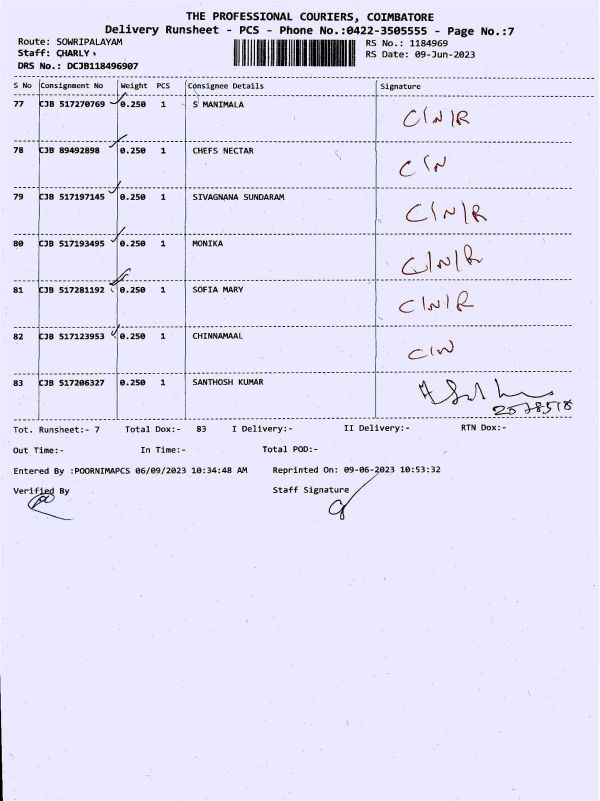 THE PROFESSIONAL COURIERS, COIMBATORE
Delivery Runsheet - PCS - Phone No.:0422-3505555 - Page No.:7
Route: SOWRIPALAYAM RS No.: 1184969
Staff: CHARLY RS Date: 09-Jun-2023
DRS No.: DCJB118496907
S No Consignment No Weight PCS Consignee Details Signature
77 CJB 517270769 0.250 1 S MANIMALA C/N/R
78 CJB 89492898 0.250 1 CHEFS NECTAR C/N
79 CJB 517197145 0.250 1 SIVAGNANA SUNDARAM C/N/R
80 CJB 517193495 0.250 1 MONIKA C/N/R
81 CJB 517281192 0.250 1 SOFIA MARY C/N/R
82 CJB 517123953 0.250 1 CHINNAMAAL C/N
83 CJB 517206327 0.250 1 SANTHOSH KUMAR
Tot. Runsheet:- 7 Total Dox:- 83 I Delivery:- II Delivery:- RTN Dox:-
Out Time:- In Time:- Total POD:-
Entered By :POORNIMAPCS 06/09/2023 10:34:48 AM Reprinted On: 09-06-2023 10:53:32
Verified By Staff Signature